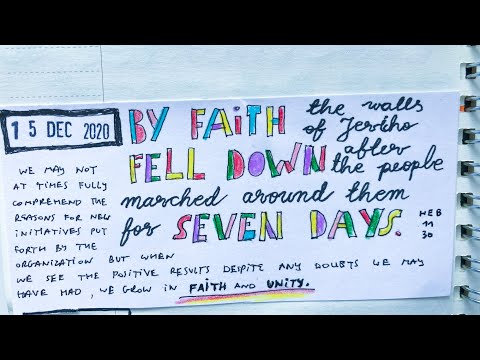 15 DEC 2020
BY FAITH the walls
of Jericho
FELL DOWN after
the people
marched around them
for SEVEN DAYS.
HEB
11
30
WE MAY NOT
AT TIMES FULLY
COMPREHEND THE
REASONS FOR NEW
INITIATIVES PUT
FORTH BY THE
ORGANIZATION BUT WHEN
WE SEE THE POSITIVE RESULTS DESPITE ANY DOUBTS WE MAY
HAVE HAD, WE GROW IN FAITH AND UNITY.